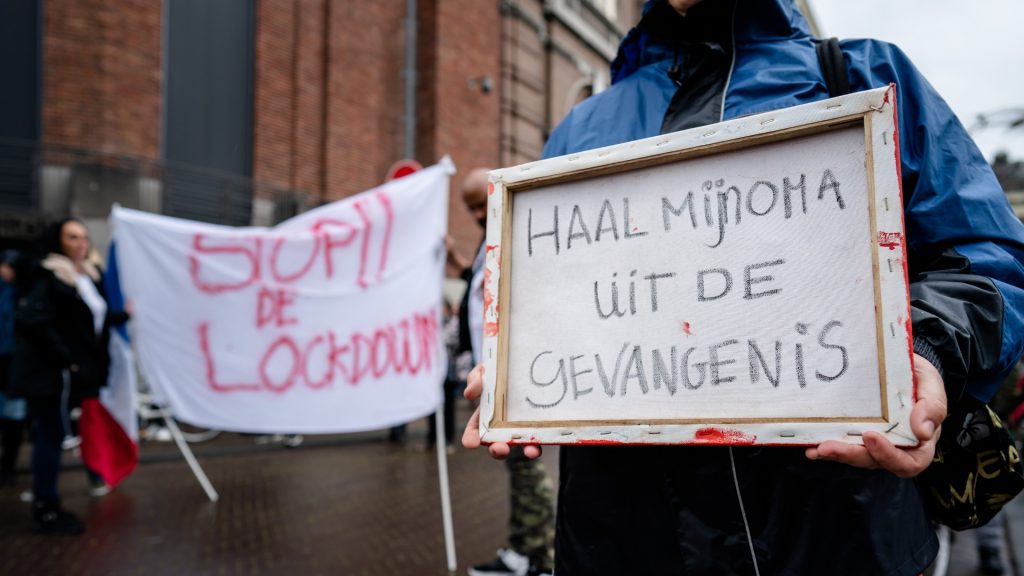 STOP!!
DE
LOCKDOWN
HAAL MijNOMA
UiT DE
GEVANGENiS